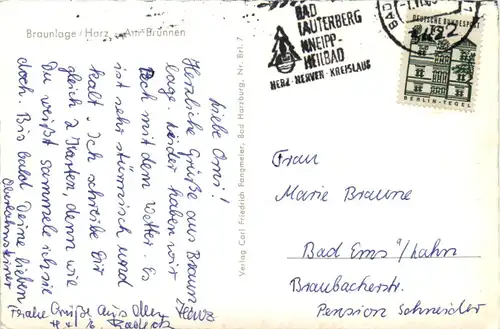 Braunlage / Harz - Am Brunnen
BAD
LAUTERBERG
KNEIPP-
HEILBAD
HERZ-NERVEN-KREISLAUF
DEUTSCHE BUNDESPOST
BERLIN-TEGEL
Liebe Omi!
Herzliche Grüße aus Braun
lage. Leider haben wir
Pech mit dem Wetter. Es
ist sehr stürmisch und
kalt. Ich schreibe Dir
gleich 2 Karten, denn wie
Du weißt sammele ich sie
doch. Bis bald Deine lieben
Oberlahnsteiner
Grüße aus dem
Verlag Carl Friedrich Fangmeier, Bad Harzburg, Nr. Brl. 7
Frau
Marie Braune
Bad Ems a/Lahn
Braubacherstr.
Pension Schneider